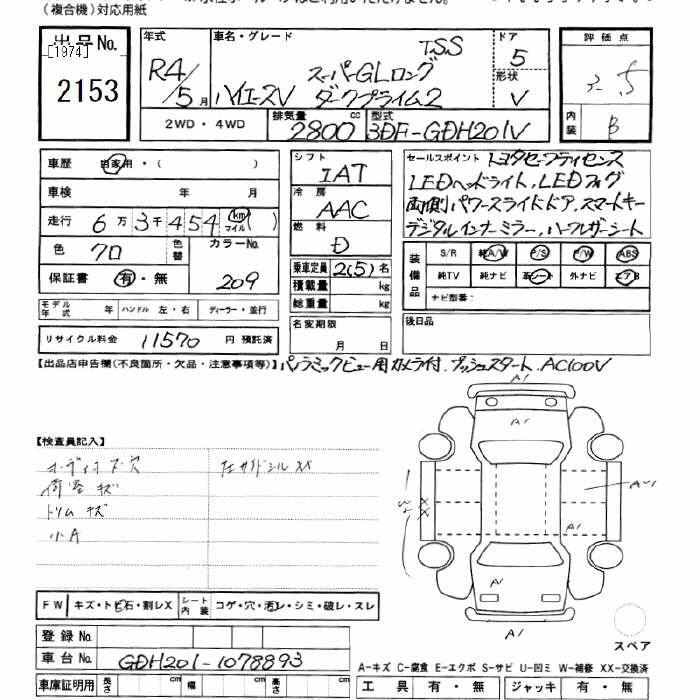 (複合機)対応用紙
出品No.
[1974]
2153
年式
R4/5月
車名・グレード
TSS
スーパーGLロング
ハイエースV ダークプライム2
ドア
5
形状
V
2WD・4WD
排気量
2800 cc
型式
3DF-GDH201V
評価点
内装
B
車歴 自家用・( )
車検 年 月
走行 6万3千454 km マイル( )
色 クロ 色替 カラーNo. 209
保証書 有・無
モデル年式 年 ハンドル 左・右 ディーラー・並行
リサイクル料金 11570 円 預託済
シフト
IAT
冷房
AAC
燃料
D
乗車定員 2(5)名
積載量 kg
総重量 kg
名変期限
月 日
セールスポイント トヨタセーフティセンス
LEDヘッドライト、LEDフォグ
両側パワースライドドア、スマートキー
デジタルインナーミラー、ハーフレザーシート
装備品
S/R 純A/W P/S P/W ABS
純TV 純ナビ 革シート 外ナビ エアB
ナビ型番:
後日品
【出品店申告欄(不良箇所・欠品・注意事項等)】パノラミックビュー用カメラ付、プッシュスタート、AC100V
【検査員記入】
荷室 キズ
トリム キズ
小A
左サイドシル XX
A1
A1
A1
A1
A1
FW キズ・トビ石・割レX シート内装 コゲ・穴・汚レ・シミ・破レ・スレ
登録No.
車台No. GDH201-1078893
車庫証明用 長さ cm 幅 cm 高さ cm
スペア
A-キズ C-腐食 E-エクボ S-サビ U-凹ミ W-補修 XX-交換済
工具 有・無 ジャッキ 有・無